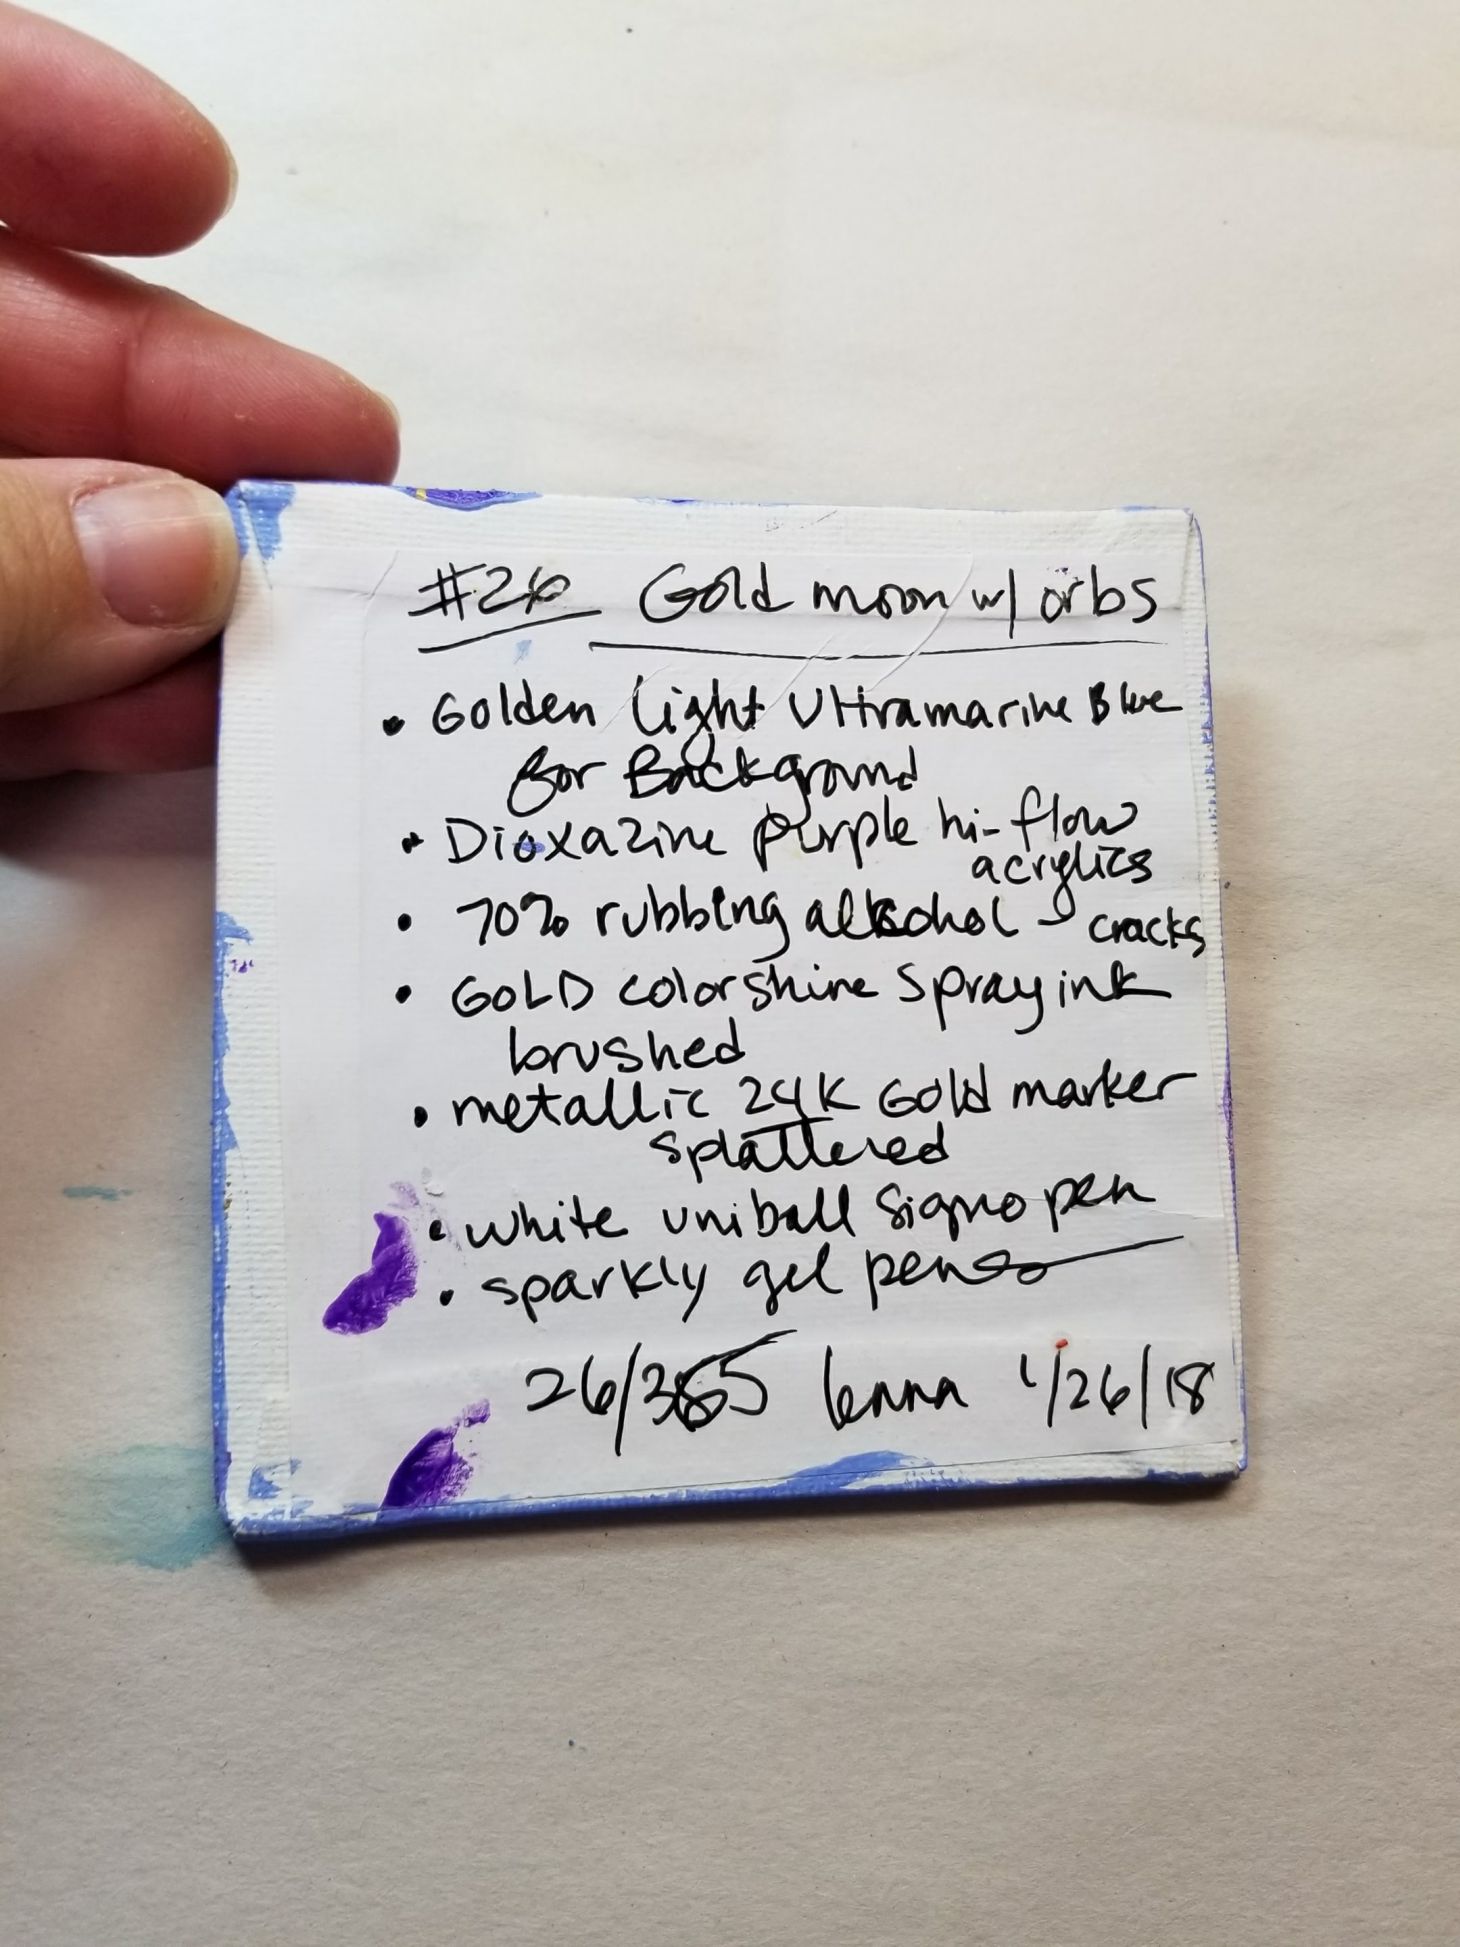 #26 Gold moon w/ orbs
• Golden light Ultramarine Blue
for Background
• Dioxazine purple hi-flow
acrylics
• 70% rubbing alcohol → cracks
• GOLD colorshine Spray ink
brushed
• metallic 24K Gold marker
splattered
• white uniball Signo pen
• sparkly gel pens
26/365 lenna 1/26/18